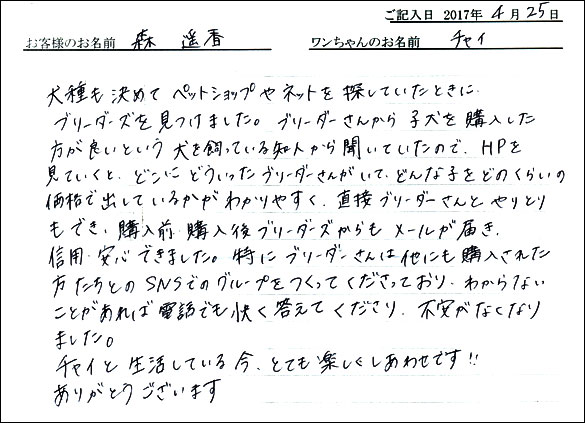 ご記入日 2017年 4月 25日
お客様のお名前 森 遥香 ワンちゃんのお名前 チャイ
犬種も決めてペットショップやネットを探していたときに
ブリーダーズを見つけました。ブリーダーさんから子犬を購入した
方が良いという犬を飼っている知人から聞いていたので、HPを
見ていくと、どこにどういったブリーダーさんがいて、どんな子をどのくらいの
価格で出しているかがわかりやすく、直接ブリーダーさんとやりとり
もでき、購入前・購入後ブリーダーズからもメールが届き、
信用・安心できました。特にブリーダーさんは他にも購入された
方たちとのSNSでのグループをつくってくださっており、わからない
ことがあれば電話でも快く答えてくださり、不安がなくなり
ました。
チャイと生活している今、とても楽しくしあわせです!!
ありがとうございます